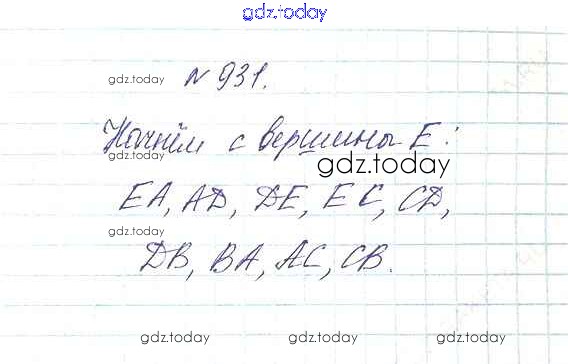 gdz.today
gdz.today № 931.
Начнём с вершины E:
gdz.today
gdz.today
EA, AD, DE, EC, CD,
gdz.today
DB, BA, AC, CB.
gdz.today gdz.today gdz.today